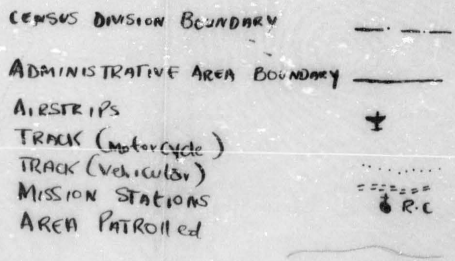 CENSUS DIVISION BOUNDARY
ADMINISTRATIVE AREA BOUNDARY
AIRSTRIPS
TRACK (Motorcycle)
TRACK (Vehicular)
MISSION STATIONS
R.C
AREA PATROLLed